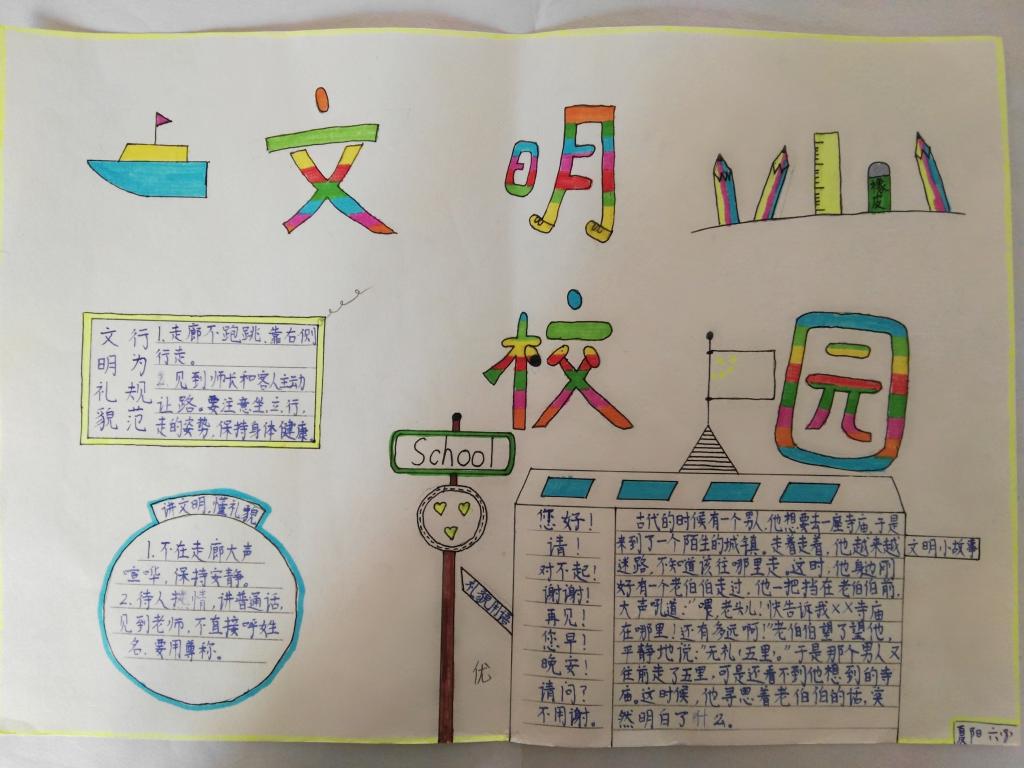 文明
校园
橡皮
文明礼貌
行为规范
1.走廊不跑跳.靠右侧
行走。
2.见到师长和客人主动
让路。要注意坐.立.行.
走的姿势.保持身体健康.
讲文明.懂礼貌
1.不在走廊大声
喧哗,保持安静。
2.待人热情,讲普通话,
见到老师,不直接呼姓
名.要用尊称。
School
礼貌用语
优
您好!
请!
对不起!
谢谢!
再见!
您早!
晚安!
请问?
不用谢。
古代的时候有一个男人,他想要去一座寺庙.于是
来到了一个陌生的城镇。走着走着,他越来越
迷路.不知道该往哪里走。这时,他身边刚
好有一个老伯伯走过,他一把挡在老伯伯前,
大声吼道:“喂,老头儿!快告诉我××寺庙
在哪里!还有多远啊!”老伯伯望了望他,
平静地说:“无礼,五里。”于是那个男人又
往前走了五里,可是还看不到他想到的寺
庙。这时候,他寻思着老伯伯的话,突
然明白了什么。
文明小故事
夏阳 六